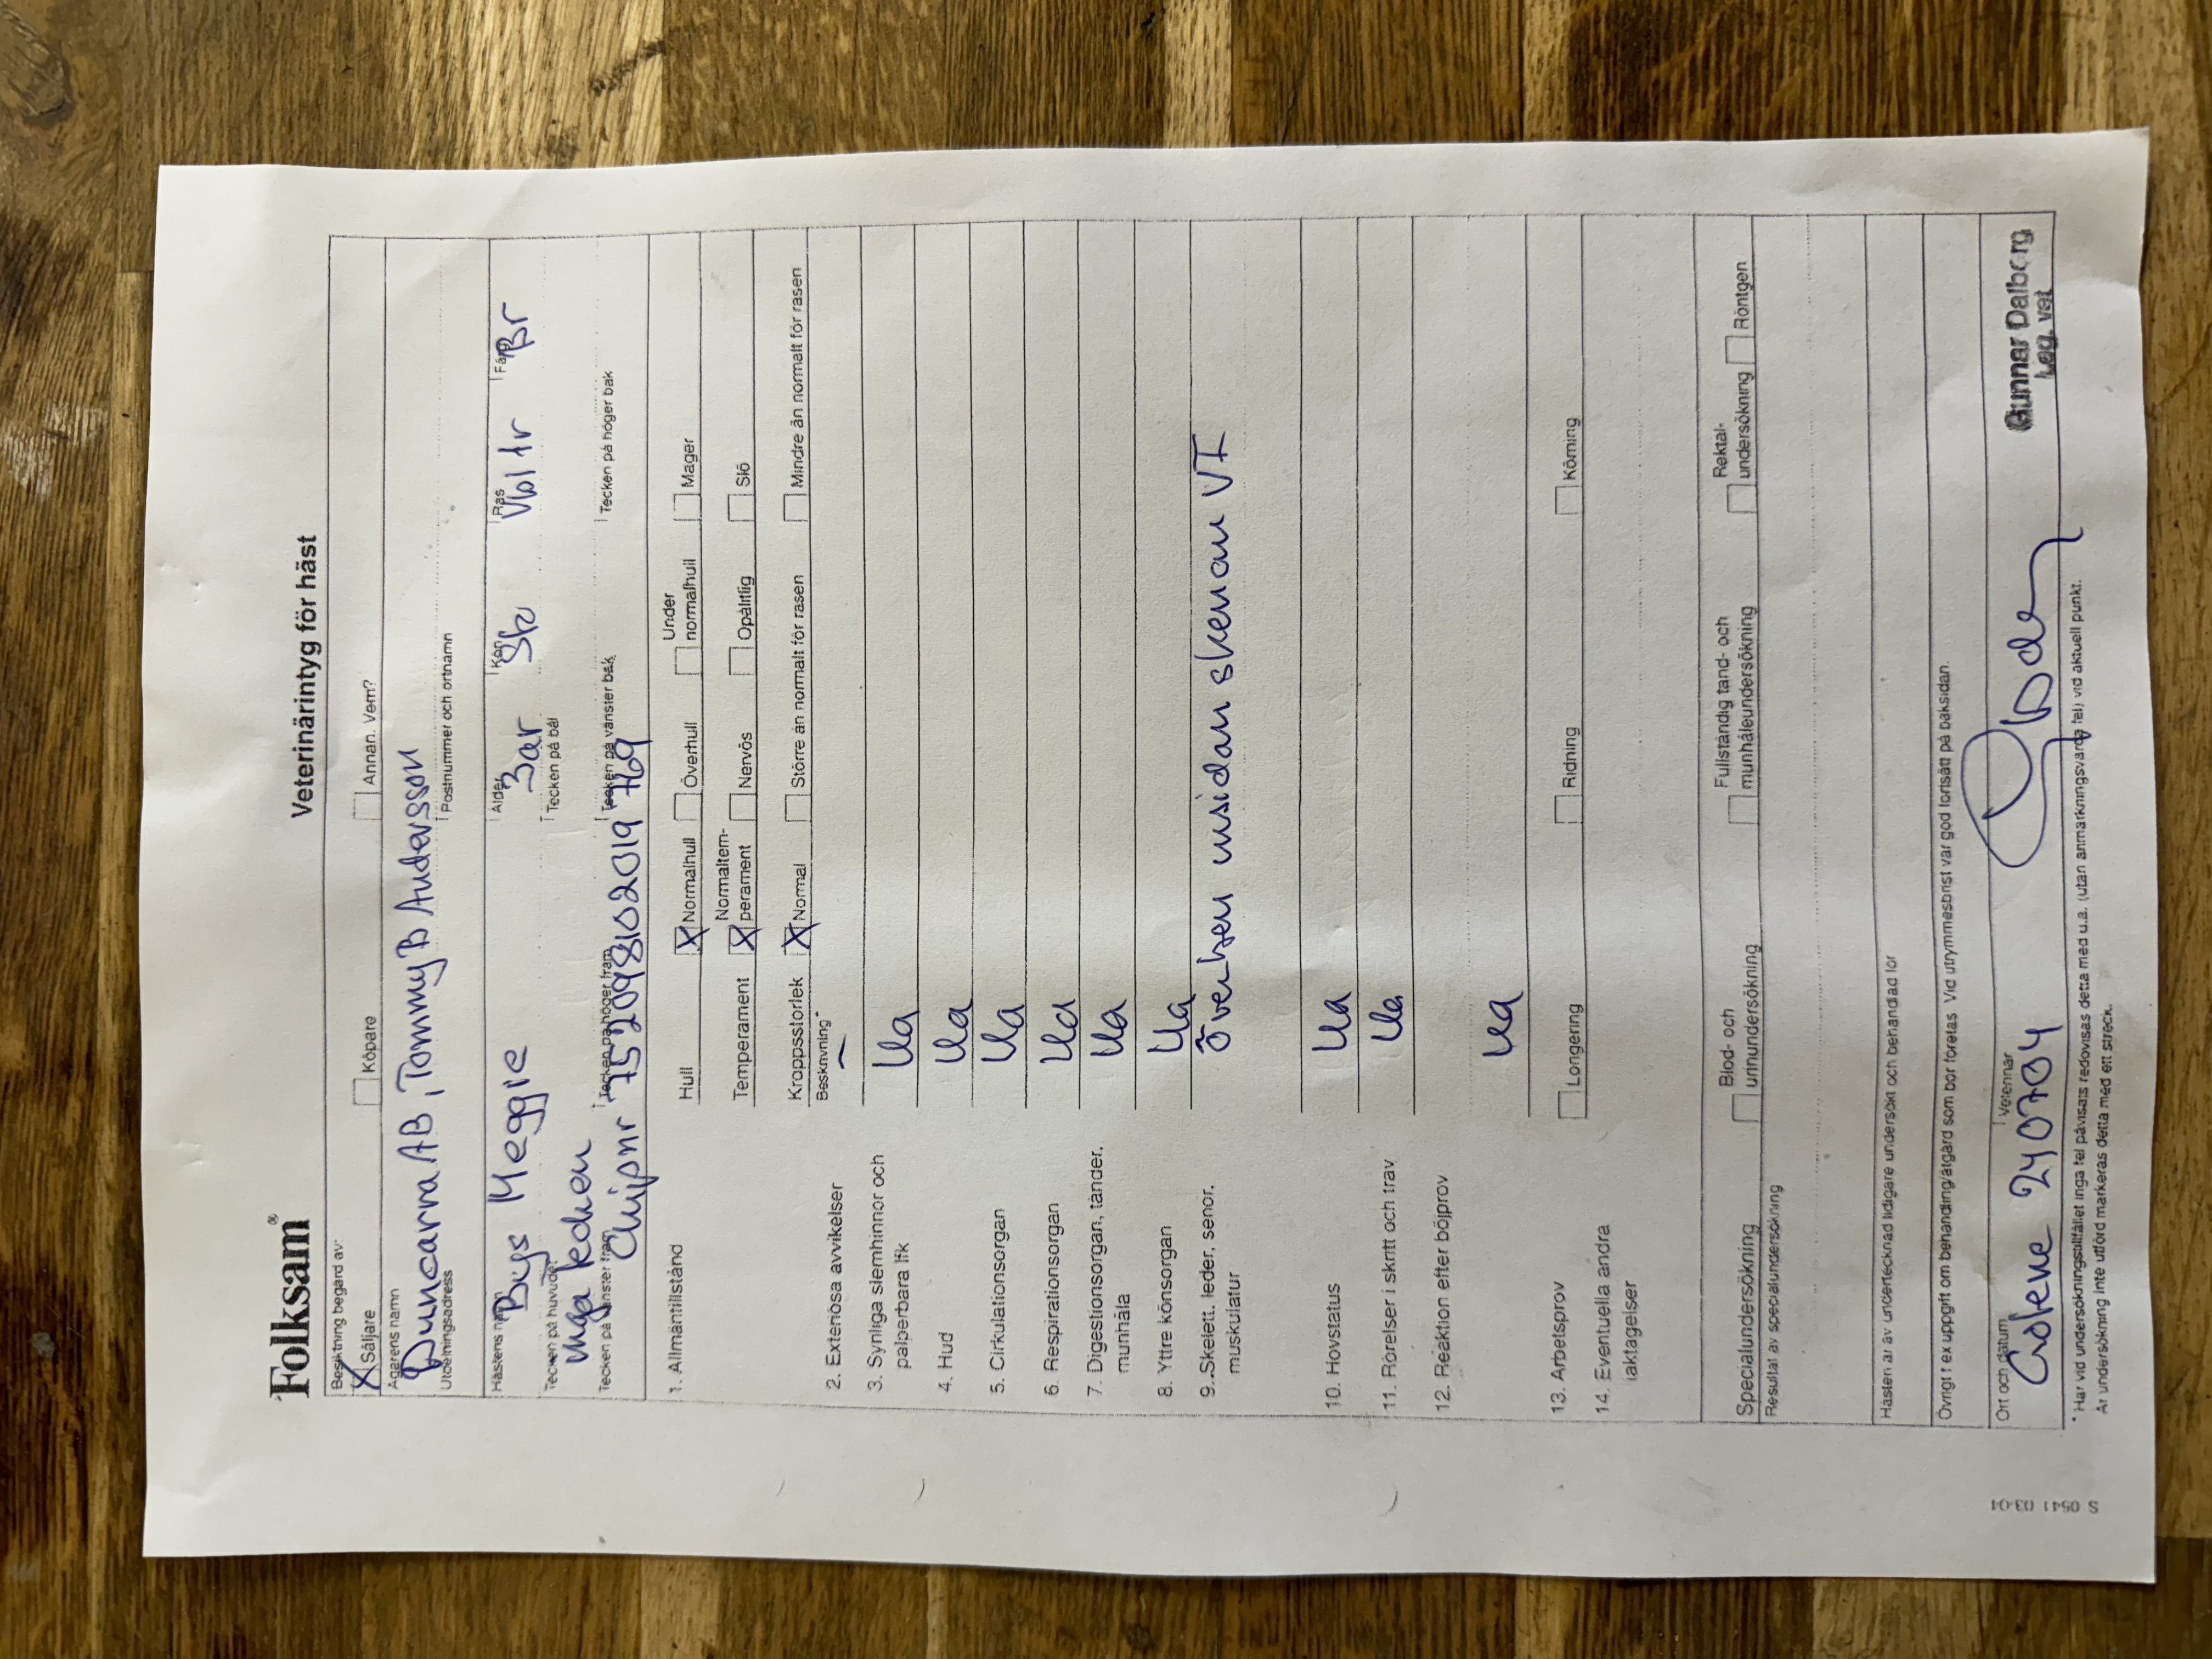 Folksam®
Veterinärintyg för häst
Besiktning begärd av:
X Säljare
Köpare
Annan. Vem?
Ägarens namn
Duncairra AB, Tommy B Andersson
Utdelningsadress
Postnummer och ortnamn
Hästens namn
Bys Meggie
Ålder
3år
Kön
Sto
Ras
Vbl tr
Färg
Br
Tecken på huvudet
inga tecken
Tecken på bål
Tecken på vänster fram
Tecken på höger fram
Tecken på vänster bak
Tecken på höger bak
Chipnr 752098102019769
1. Allmäntillstånd
Hull
X Normalhull
Överhull
Under normalhull
Mager
Temperament
X Normaltem-
perament
Nervös
Opålitlig
Slö
Kroppsstorlek
X Normal
Större än normalt för rasen
Mindre än normalt för rasen
Beskrivning*
2. Exteriösa avvikelser
–
3. Synliga slemhinnor och
palperbara lfk
Ua
4. Hud
Ua
5. Cirkulationsorgan
Ua
6. Respirationsorgan
Ua
7. Digestionsorgan, tänder,
munhåla
Ua
8. Yttre könsorgan
Ua
9. Skelett, leder, senor,
muskulatur
Överben insidan skenan VF
10. Hovstatus
Ua
11. Rörelser i skritt och trav
Ua
12. Reaktion efter böjprov
ua
13. Arbetsprov
Longering
Ridning
Körning
14. Eventuella andra
iakttagelser
Specialundersökning
Blod- och
urinundersökning
Fullständig tand- och
munhåleundersökning
Rektal-
undersökning
Röntgen
Resultat av specialundersökning
Hästen är av undertecknad tidigare undersökt och behandlad för
Övrigt t ex uppgift om behandling/åtgärd som bör företas. Vid utrymmesbrist var god fortsätt på baksidan.
Ort och datum
240704
Veterinär
Gunnar Dalborg
Leg. vet
* Har vid undersökningstillfället inga fel påvisats redovisas detta med u.a. (utan anmärkningsvärda fel) vid aktuell punkt.
Är undersökning inte utförd markeras detta med ett streck.
S 0541 03-01